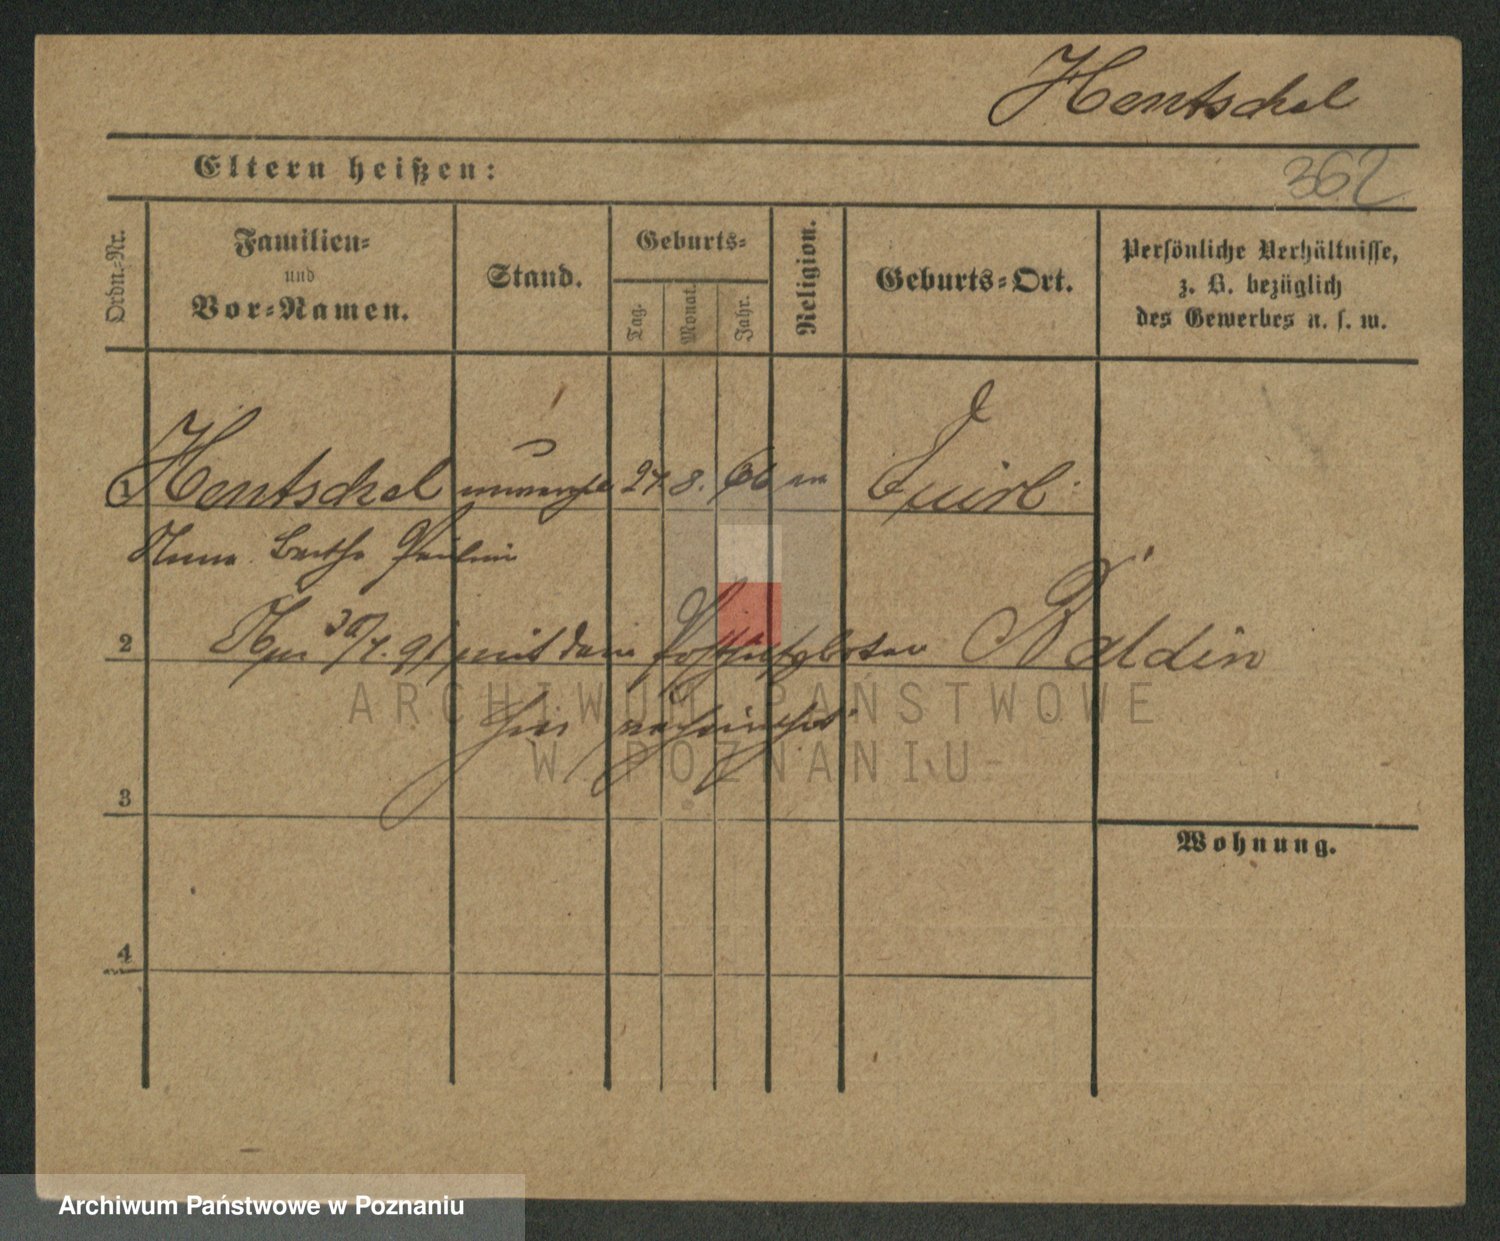 Hentschel
Eltern heißen:
362
Ordn.-Nr.
Familien-
und
Vor-Namen.
Stand.
Geburts-
Tag.
Monat.
Jahr.
Religion.
Geburts-Ort.
Persönliche Verhältnisse,
z. B. bezüglich
des Gewerbes u. s. w.
1 Hentschel unverehel 27. 8. 66
Anna Bertha Pauline
2 30/4. 91 mit dem Baldin
hier
ARCHIWUM PAŃSTWOWE
W POZNANIU
3
Wohnung.
4
Archiwum Państwowe w Poznaniu